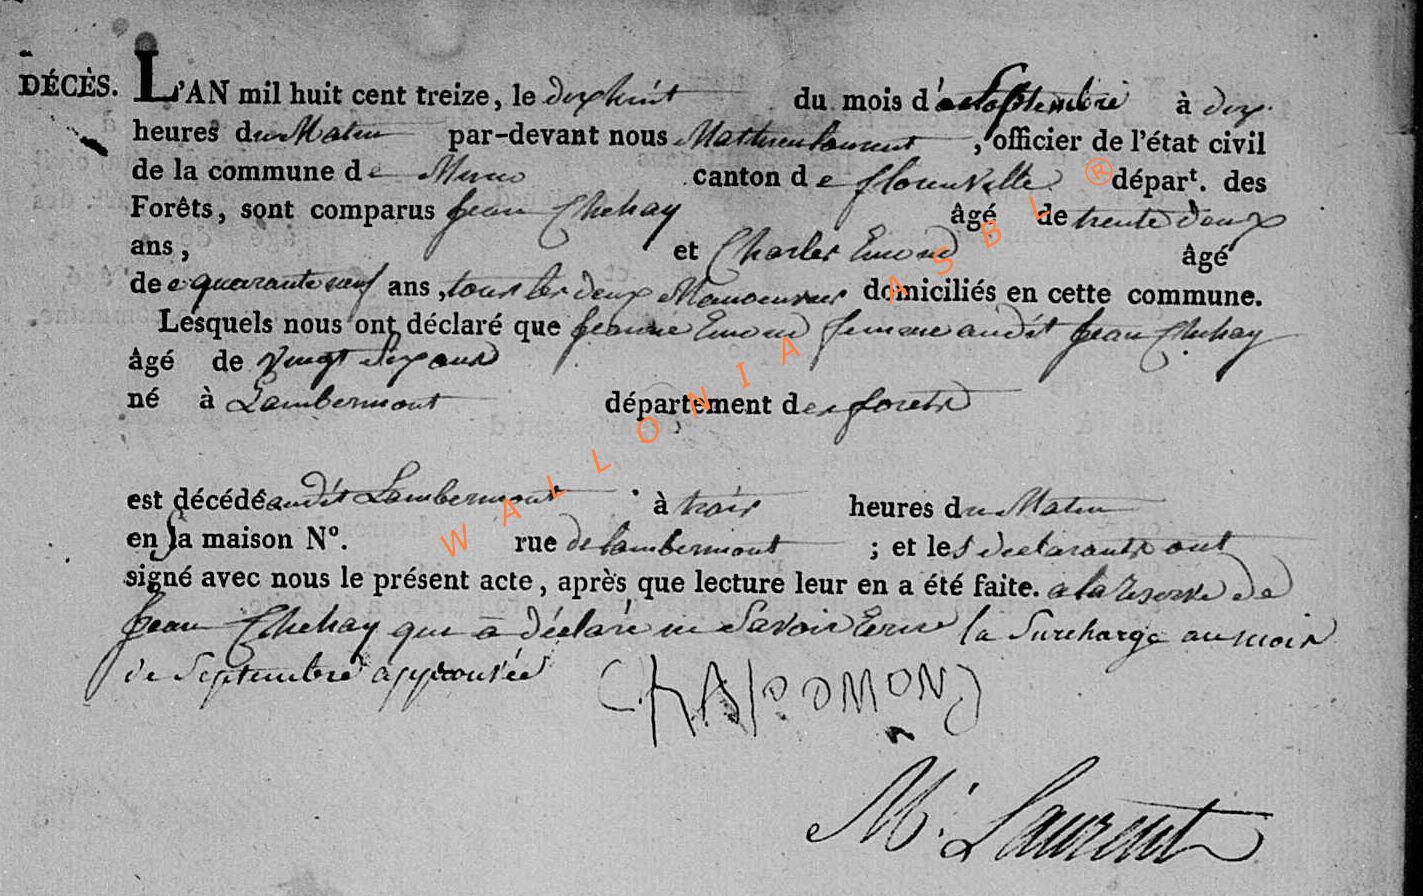 DÉCÈS. L'AN mil huit cent treize, le dixhuit du mois d'octo Septembre à dix
heures du Matin par-devant nous Mathieu Laurent, officier de l'état civil
de la commune de Muno canton de florenville ® départ. des
Forêts, sont comparus Jean Chehay âgé de trente deux
ans, et Charles Emond âgé
de quarante neuf ans, tous les deux Manoeuvres domiciliés en cette commune.
Lesquels nous ont déclaré que Jeanne Emond femme audit Jean Chehay
âgé de vingt Six ans
né à Lambermont département des forets
est décédé audit Lambermont à trois heures du Matin
en Sa maison N°. rue de Lambermont ; et les declarants ont
signé avec nous le présent acte, après que lecture leur en a été faite. a la reserve de
Jean Chehay qui a déclaré ne Savoir Ecrire la Surcharge au mois
de Septembre approuvée
M. Laurent
WALLONIA ASBL